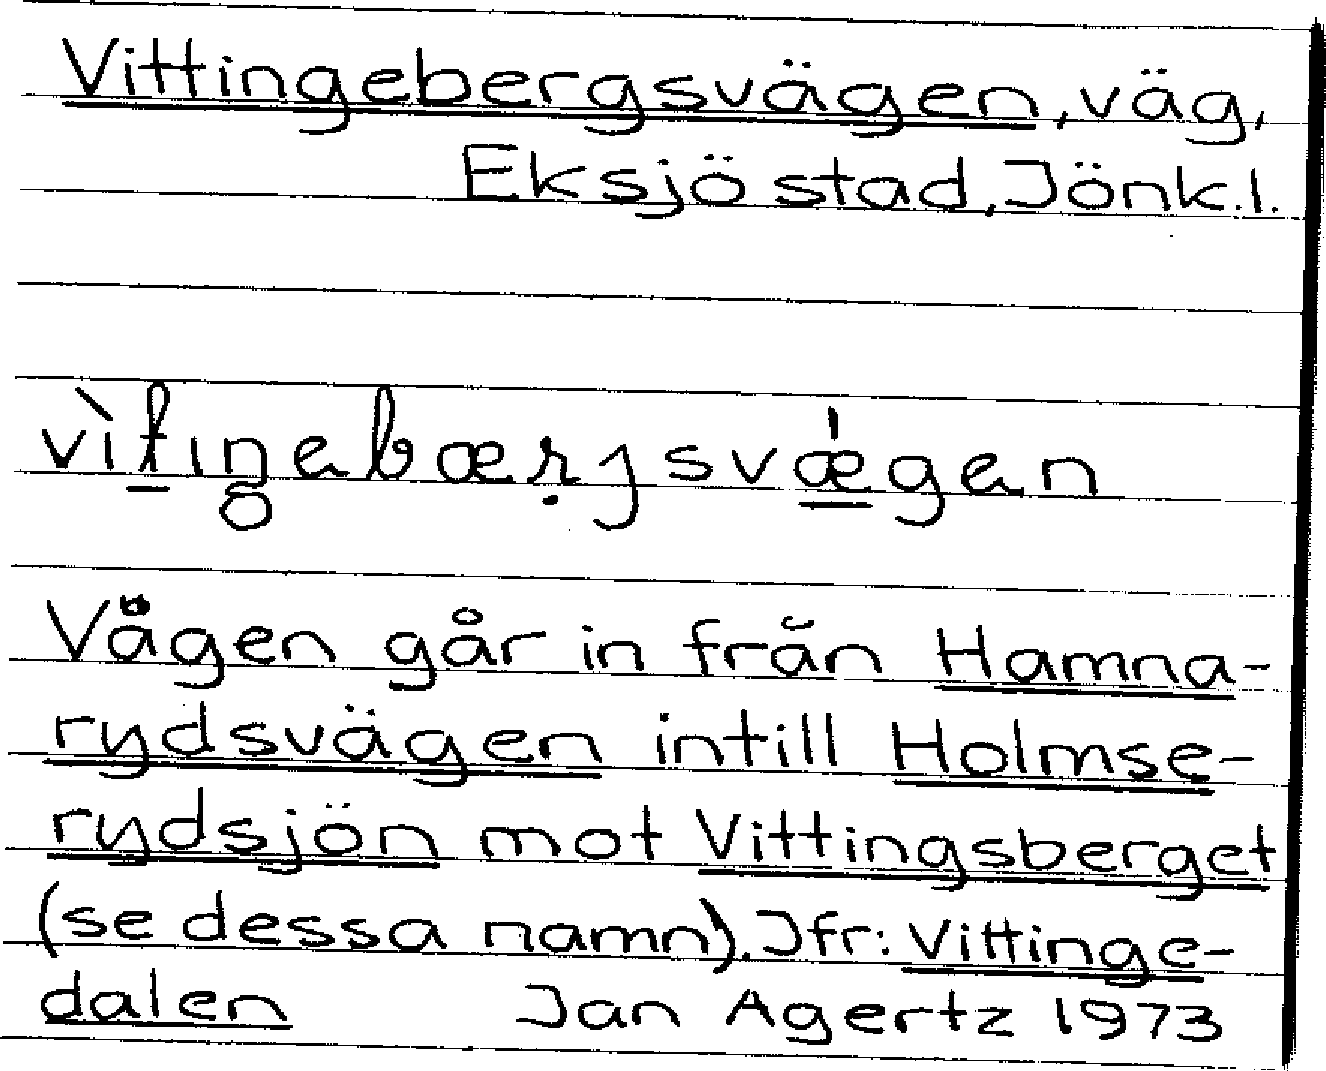 Vittingebergsvägen, väg,
Eksjö stad, Jönk.l.
vìtiŋebærjsvǽgen
Vägen går in från Hamna-
rydsvägen intill Holmse-
rydsjön mot Vittingsberget
(se dessa namn). Jfr: Vittinge-
dalen Jan Agertz 1973